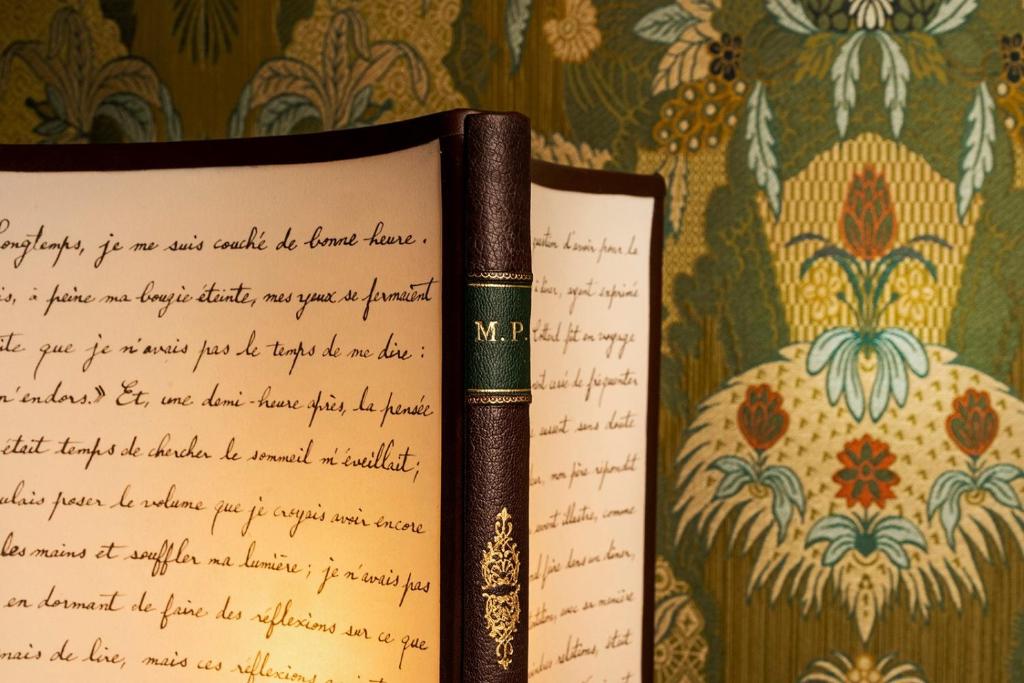 Longtemps, je me suis couché de bonne heure.
is, à peine ma bougie éteinte, mes yeux se fermaient
ite que je n'avais pas le temps de me dire :
m'endors.» Et, une demi-heure après, la pensée
était temps de chercher le sommeil m'éveillait ;
ulais poser le volume que je croyais avoir encore
les mains et souffler ma lumière ; je n'avais pas
en dormant de faire des réflexions sur ce que
nais de lire, mais ces réflexions
M. P.
question d'avoir pour la
à dîner, ayant exprimé
Cottard fût en voyage
cessé de fréquenter
eussent sans doute
mon père répondit
savant illustre, comme
faire dans un dîner,
avec sa manière
relations, était